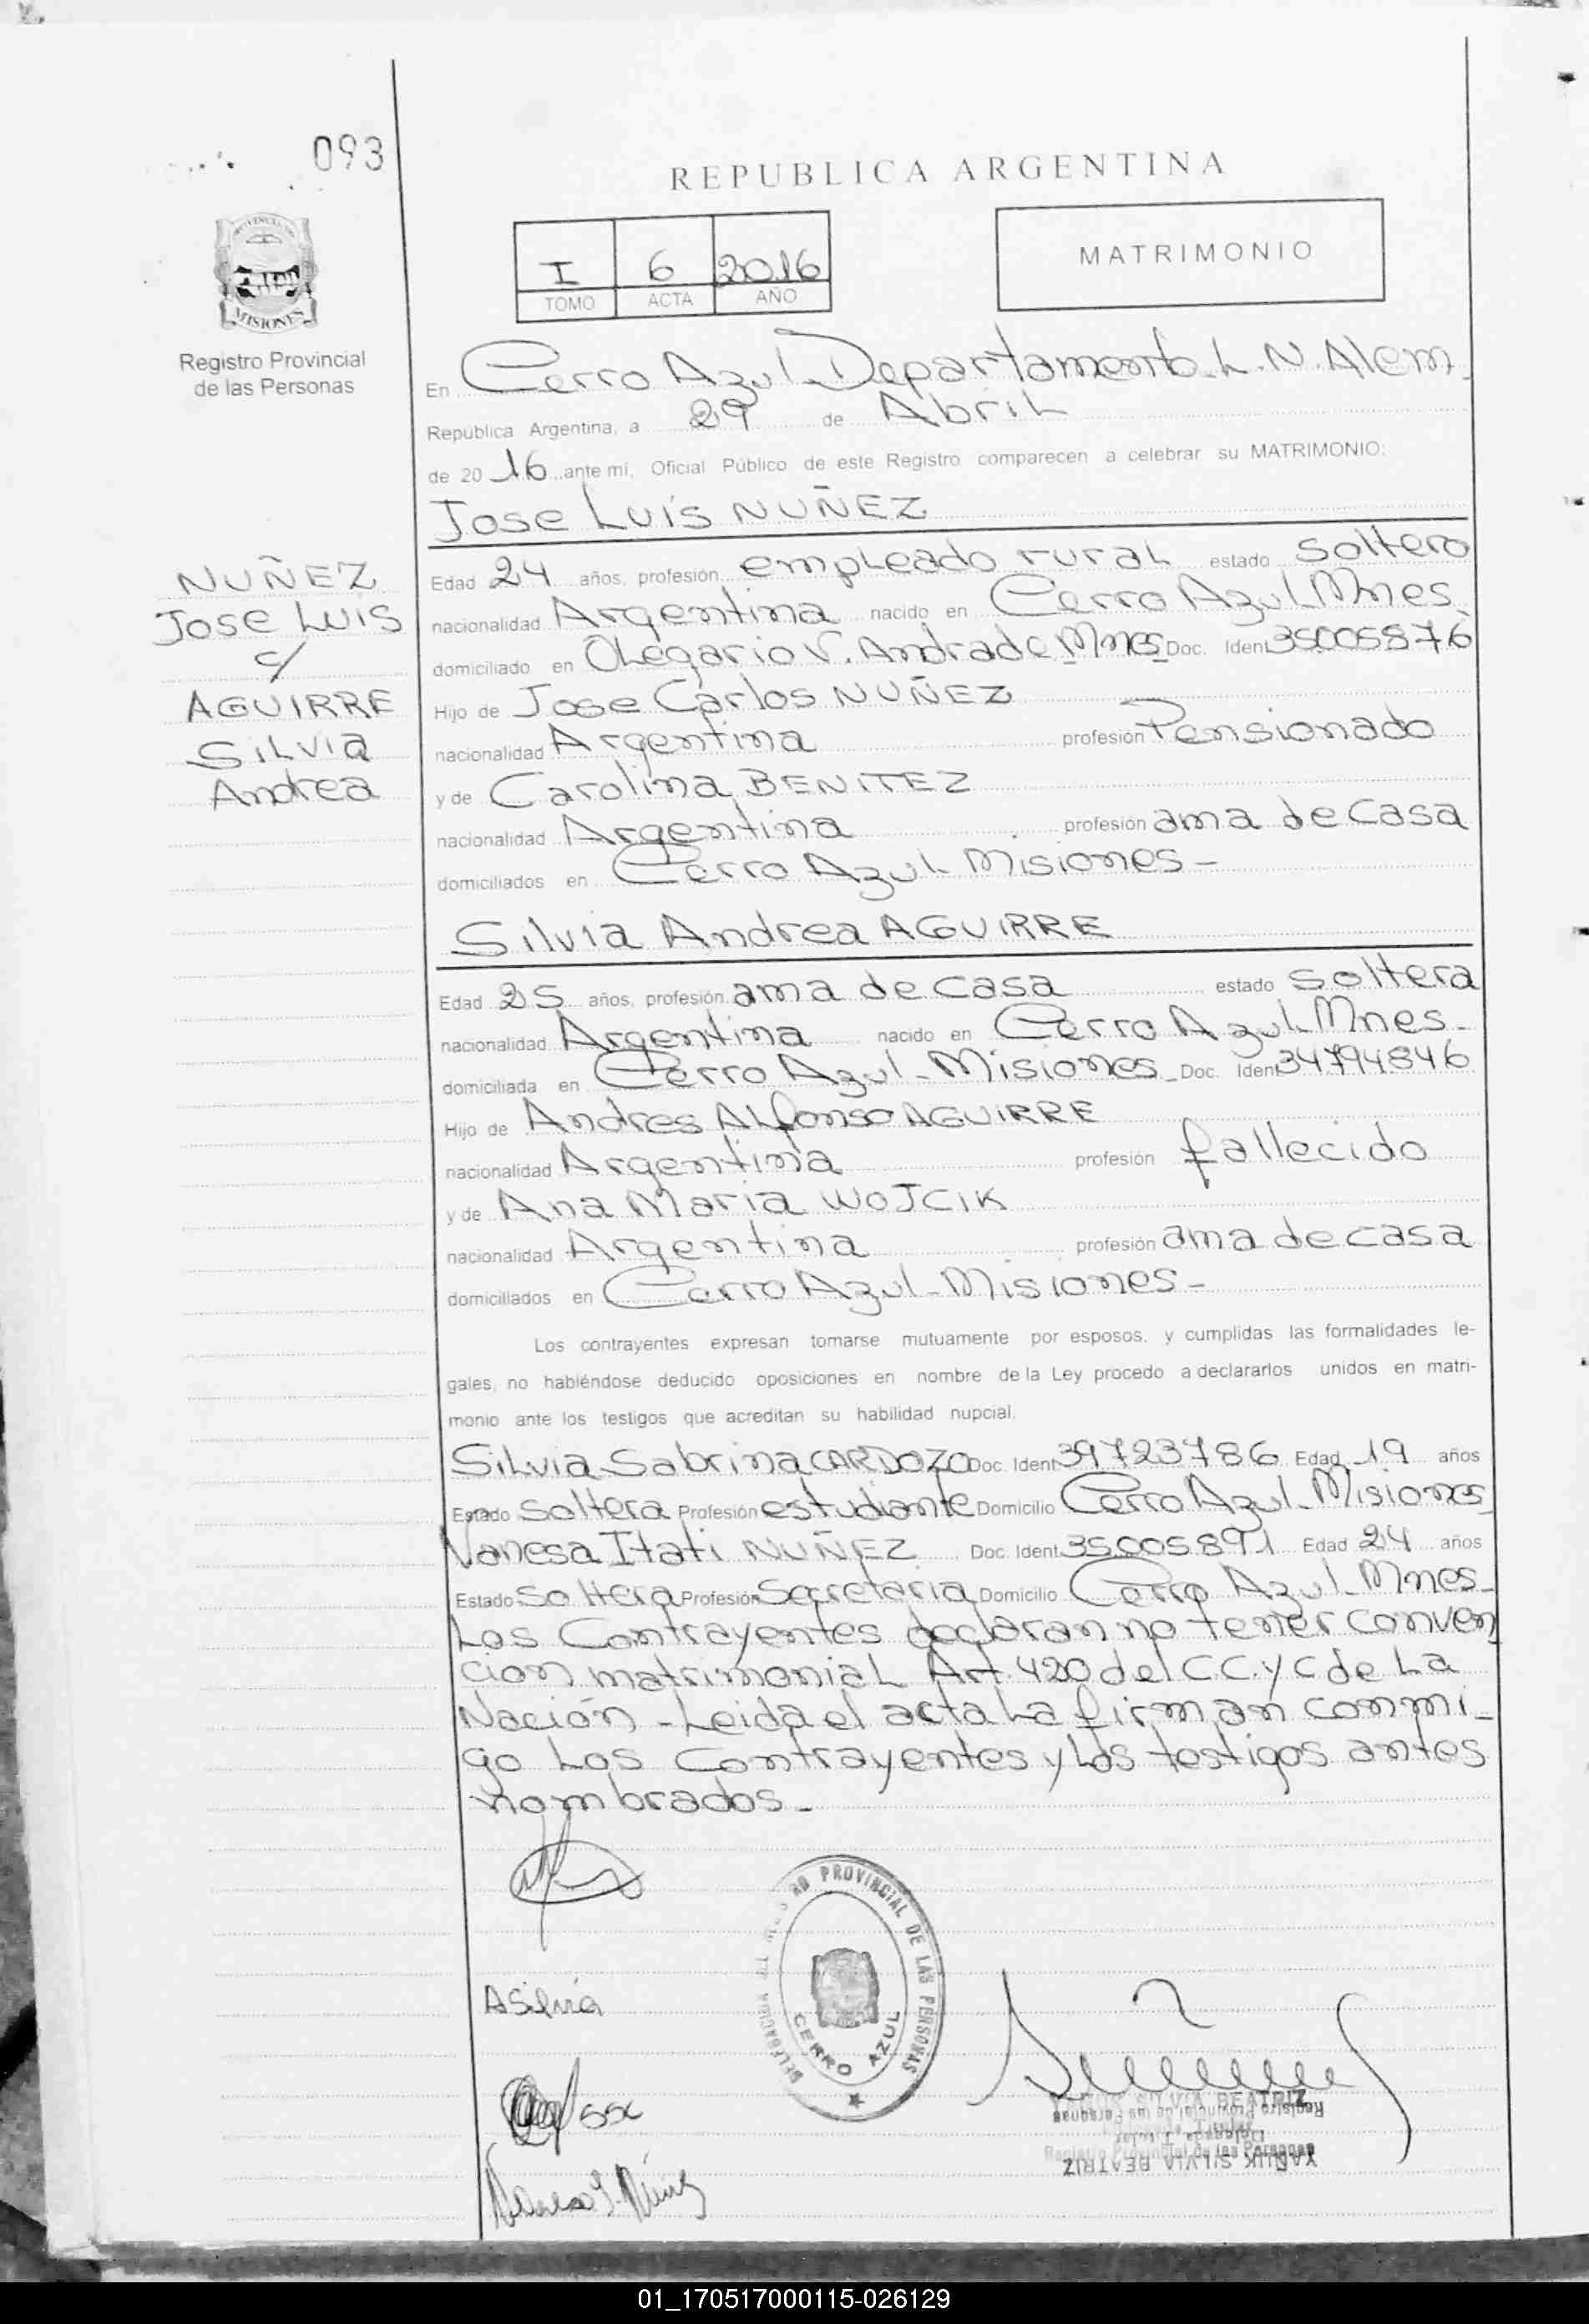 093
REPUBLICA ARGENTINA
I 6 2016
TOMO ACTA AÑO
MATRIMONIO
MISIONES
Registro Provincial
de las Personas
En Cerro Azul Departamento L. N. Alem
República Argentina, a 29 de Abril
de 2016 ante mí, Oficial Público de este Registro comparecen a celebrar su MATRIMONIO:
Jose Luis NUÑEZ
NUÑEZ
Jose Luis
c/
AGUIRRE
Silvia
Andrea
Edad 24 años, profesión empleado rural estado soltero
nacionalidad Argentina nacido en Cerro Azul Mnes
domiciliado en Olegario V. Andrade Mnes Doc. Ident 35005876
Hijo de Jose Carlos NUÑEZ
nacionalidad Argentina profesión Pensionado
y de Carolina BENITEZ
nacionalidad Argentina profesión ama de casa
domiciliados en Cerro Azul Misiones -
Silvia Andrea AGUIRRE
Edad 25 años, profesión ama de casa estado soltera
nacionalidad Argentina nacido en Cerro Azul Mnes -
domiciliada en Cerro Azul - Misiones - Doc. Ident 34794846
Hijo de Andres Alfonso AGUIRRE
nacionalidad Argentina profesión fallecido
y de Ana Maria WOJCIK
nacionalidad Argentina profesión ama de casa
domiciliados en Cerro Azul - Misiones -
Los contrayentes expresan tomarse mutuamente por esposos, y cumplidas las formalidades le-
gales, no habiéndose deducido oposiciones en nombre de la Ley procedo a declararlos unidos en matri-
monio ante los testigos que acreditan su habilidad nupcial.
Silvia Sabrina CARDOZO Doc. Ident 39723786 Edad 19 años
Estado soltera Profesión estudiante Domicilio Cerro Azul - Misiones
Vanesa Itati NUÑEZ Doc. Ident 35005891 Edad 24 años
Estado soltera Profesión Secretaria Domicilio Cerro Azul - Mnes -
Los Contrayentes declaran no tener conven
cion matrimonial Art. 420 del C.C. y C de La
Nación - Leida el acta La firman conmi -
go Los Contrayentes y Los testigos antes
nombrados -
PROVINCIAL DE LAS PERSONAS
CERRO AZUL
ASilvia
SILVIA BEATRIZ
Registro Provincial de las Personas
Delegada Titular
Registro Provincial de las Personas
SILVIA BEATRIZ
01_170517000115-026129